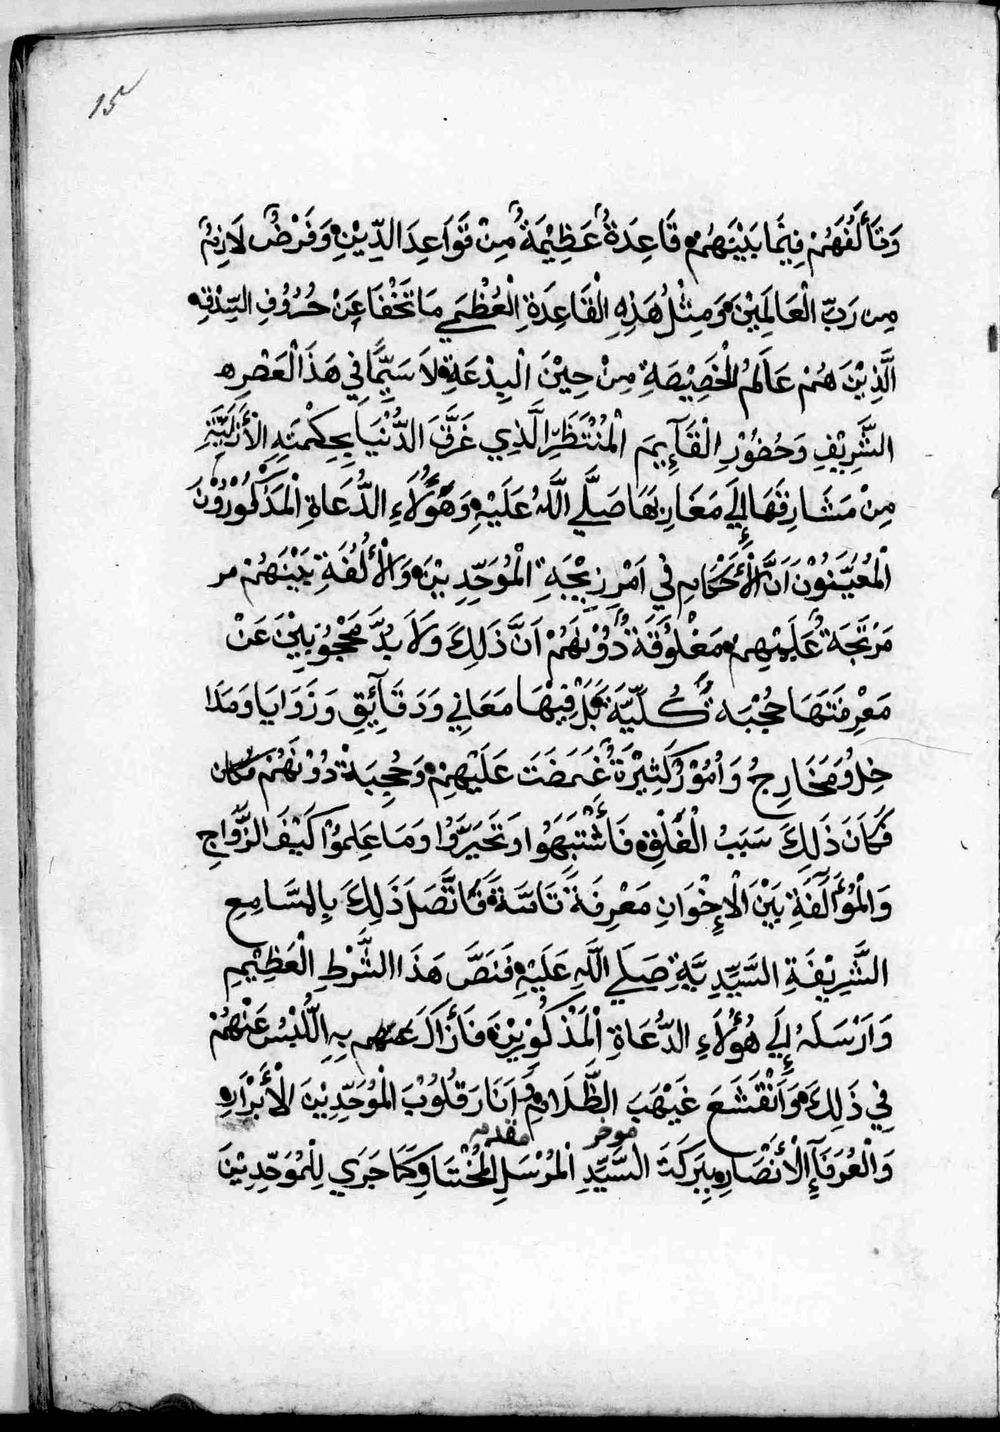 وَتَأَلُّفُهُمْ فِيْمَا بَيْنَهُمْ قَاعِدَةٌ عَظِيْمَةٌ مِنْ قَوَاعِدَ الدِّيْنِ وَفَرْضٌ لَازِمٌ
مِن رَبِّ الْعَالَمِيْنَ وَمِثْلُ هَذِهِ الْقَاعِدَةِ الْعُظْمَي مَا تَخْفَا عَنْ حُرُوْفِ السِّدْقِ
الَّذِيْنَ هُمْ عَالَمُ الْخَصِيْصَةِ مِنْ حِيْنَ الْبِدْعَةِ لَا سَيِّمَا فِي هَذَا لْعَصْرِ
الشَّرِيْفِ وَحُضُوْرِ الْقَآئِيمَ الْمُنْتَظَرِ الَّذِي غَرَّقَ الدُّنْيَا بِحِكْمَتِهِ الْأَزَلِيَّةِ
مِنْ مَشَارِقَهَا إِلَي مَغَارِبَهَا صَلَّي اللَّهُ عَلَيْهِ وَهَؤُلَاءِ الدُّعَاةِ الْمَذْكُوْرُوْنَ
الْمُعَيَّنُوْنَ اَنَّ الْأَحْكَامِ فِي اَمْرِ زِيْجَةِ الْمُوَحِّدِيْنَ وَالْأُلْفَةِ بَيْنَهُمْ
مَرْتَجَةٌ عَلَيْهِمْ مَغْلُوْقَةٌ دُوْنَهُمْ اَنَّ ذَلِكَ وَلَا بُدَّ مَحْجُوْبِيْنَ عَنْ
مَعْرِفَتَهَا حُجْبَةً كُلِّيَّةً بَلْ فِيْهَا مَعَانِي وَدَقَآئِقِ وَزَوَايَا وَمَدَا
خِلُ وَمَخَارِجُ وَاُمُوْرٌ كَثِيْرَةٌ غَمَضَتَ عَلَيْهِمْ وَحُجِبَةْ دُوْنَهُمْ
فَكَانَ ذَلِكَ سَبَبُ الْغَلْقِ فَاَشْتَبَهُوا وَتَحَيَّرُوْا وَمَا عَلِمُوْا كَيْفَ الزَّوَاجِ
وَالْمُؤَآلَفَةِ بَيْنَ الْإِخْوَانِ مَعْرِفَةً تَآمَّةً فَاتَّصَلَ ذَلِكَ بِالمَسَامِعِ
الشَّرِيْفَةِ السَّيِّدِيَّةِ صَلَي اللَّهِ عَلَيْهِ فَنَصَّ هَذَا الشَّرْطِ الْعَظِيْمِ
وَاَرْسَلَهُ إِلَي هُؤُلَاءِ الدُّعَاةِ الْمَذْكُوْرِيْنَ فَأَزَاَلَ بِهِ الْلَّبْسُ عَنْهُمْ
فِي ذَلِكَ وَاَنْقَشَعَ غَيْهَبَ الظَّلَامِ وَاَنَارَ قُلُوْبَ الْمُوَحِّدِيْنَ الْأَبْرَارِ
موخر مقدم
وَالْعُرَفَآءِ الْأَنْصَارِ بِبَرَكَةَ السَّيِّدِ الْمُرْسَلِ الْمُخْتَارِ وَكَمَا جَرَي لِلْمُوَحِّدِيْنَ